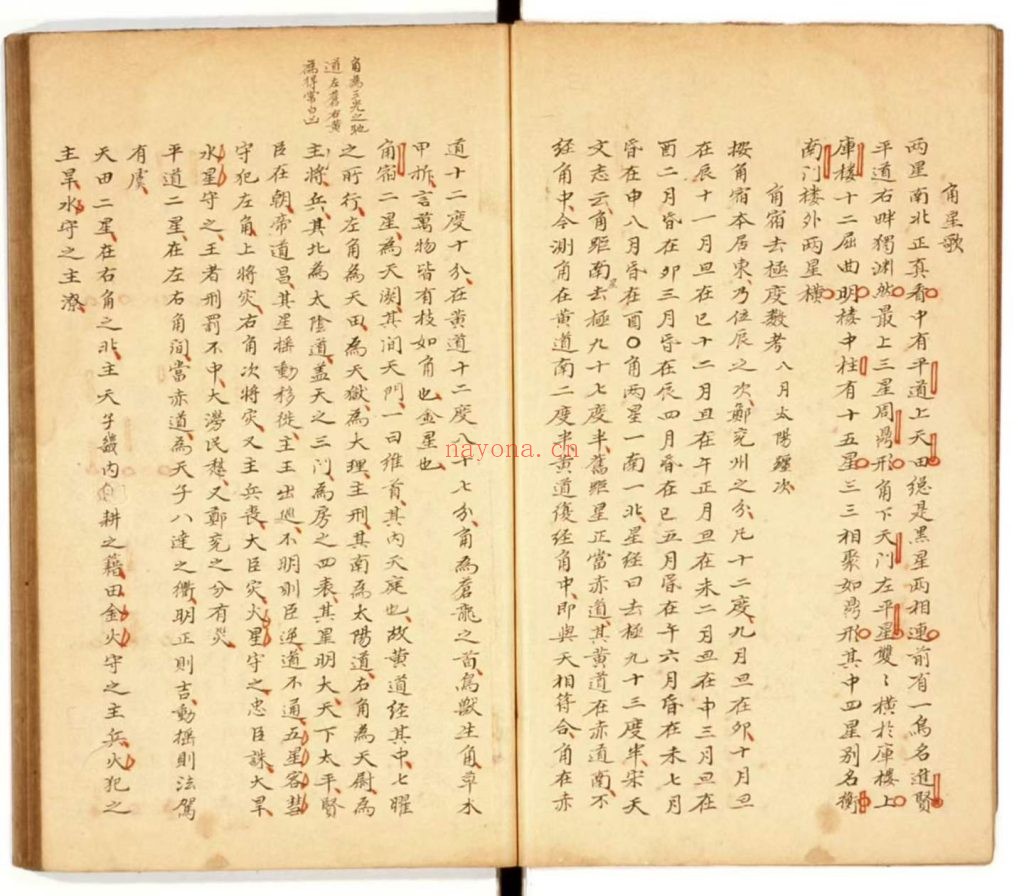 角星歌
两星南北正真看中有平道上天田縂是黑星两相連前有一烏名進賢
平道右畔獨渊然最上三星周鼎形角下天门左平星雙〻横扵庫樓上
庫楼十二屈曲明楼中柱有十五星三三相聚如鼎形其中四星别名衡
南门楼外两星横
角宿去極度数考 八月太陽躔次
按角宿本居東乃位辰之次鄭兖州之分凡十二度九月旦在夘十月旦
在辰十一月旦在巳十二月旦在午正月旦在未二月旦在申三月旦在
酉二月昏在夘三月昏在辰四月昏在巳五月昏在午六月昏在未七月
昏在申八月昏在酉〇角两星一南一北星经曰去極九十三度半宋天
文志云角距南星去極九十七度半舊距星正當赤道其黄道在赤道南不
经角中今測角在黄道南二度半黄道復经角中即與天相符合角在赤
道十二度十分在黄道十二度八十七分角為蒼龍之首鳥獸生角草木
甲拆言萬物皆有枝如角也金星也
角宿二星為天関其间天門一曰維首其内天庭也故黄道经其中七曜
之所行左角為天田為天獄為大理主刑其南為太陽道右角為天尉為
主將兵其北為太陰道盖天之三门為房之四表其星明大天下太平賢
臣在朝帝道昌其星摇動移徙主王出廵不明則臣逆道不通五星客彗
守犯左角上將灾右角次將灾又主兵喪大臣灾火星守之忠臣誅大旱
水星守之王者刑罰不中大澇民愁又鄭兖之分有災
平道二星在左右角间當赤道為天子八達之衢明正則吉動摇則法駕
有虞
天田二星在右角之北主天子畿内耕之藉田金火守之主兵火犯之
主旱水守之主潦
角為三光之馳
道左蒼右黄
為得常白凶
nayona.cn